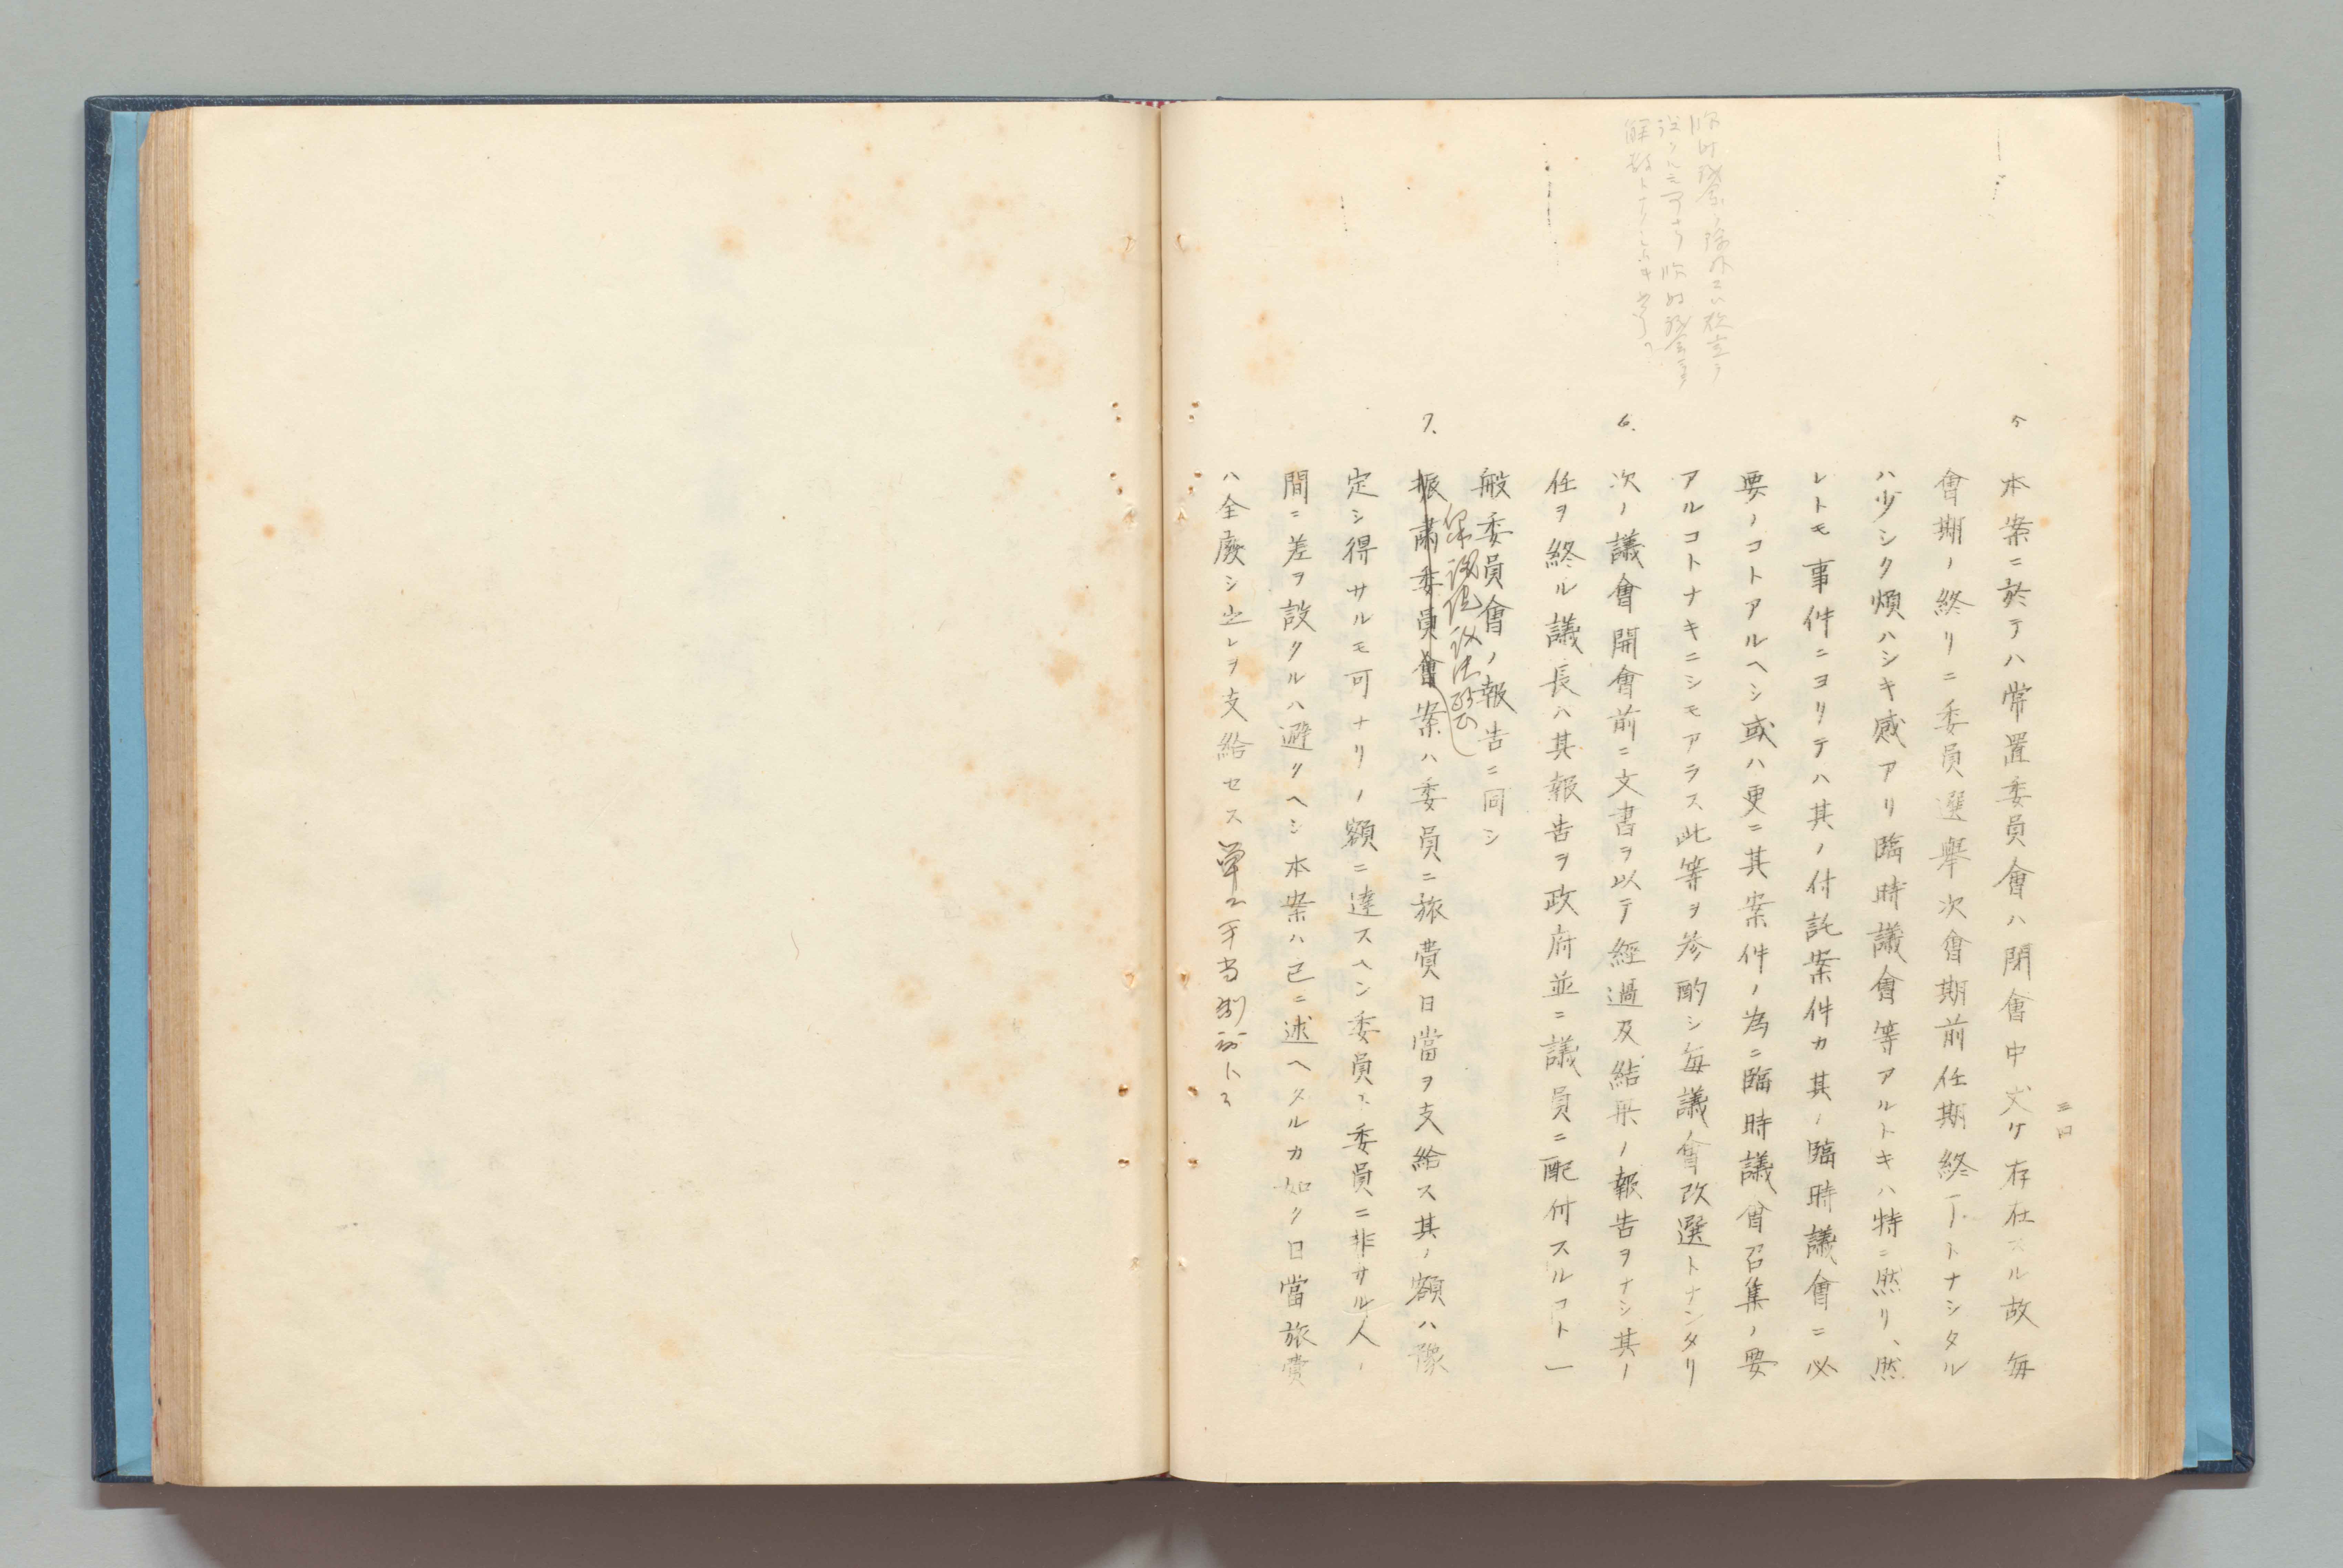 5 本案ニ於テハ常置委員會ハ閉會中丈ケ存在スル故毎
會期ノ終リニ委員選擧次會期前任期終了トナシタル
ハ少シク煩ハシキ感アリ臨時議會等アルトキハ特ニ然リ、然
レトモ事件ニヨリテハ其ノ付託案件カ其ノ臨時議會ニ必
要ノコトアルヘシ或ハ更ニ其案件ノ為ニ臨時議會召集ノ要
アルコトナキニシモアラス此等ヲ参酌シ毎議會改選トナシタリ
6. 次ノ議會開會前ニ文書ヲ以テ經過及結果ノ報告ヲナシ其ノ
任ヲ終ル議長ハ其報告ヲ政府並ニ議員ニ配付スルコト一
般委員會ノ報告ニ同シ
7. 振肅委員會案ハ委員ニ旅費日當ヲ支給ス其ノ額ハ豫
定シ得サルモ可ナリノ額ニ達スヘシ委員ト委員ニ非サル人ノ
間ニ差ヲ設クルハ避クヘシ本案ハ已ニ述ヘタルカ如ク日當旅費
ハ全廢シ之レヲ支給セス單ニ手当